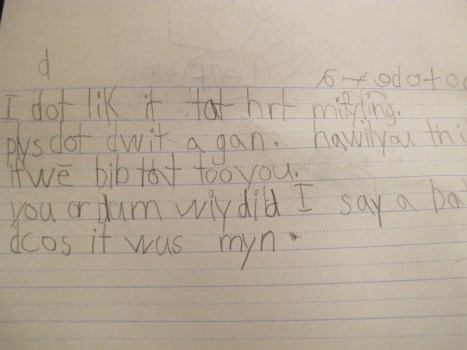 d
I dot lik it tat hrt mi filing.
plys dot dwit a gan. hawilyou thi
if we bib tat too you.
you or dum wiy did I say a ba
dcos it wus myn.